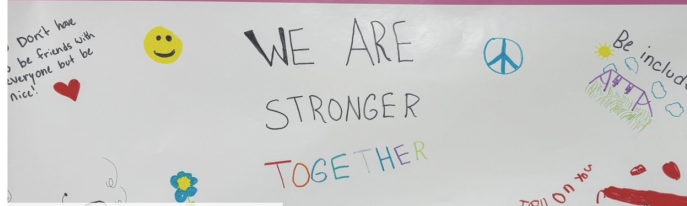 Don't have
be friends with
everyone but be
nice!
WE ARE
STRONGER
TOGETHER
Be include
on you